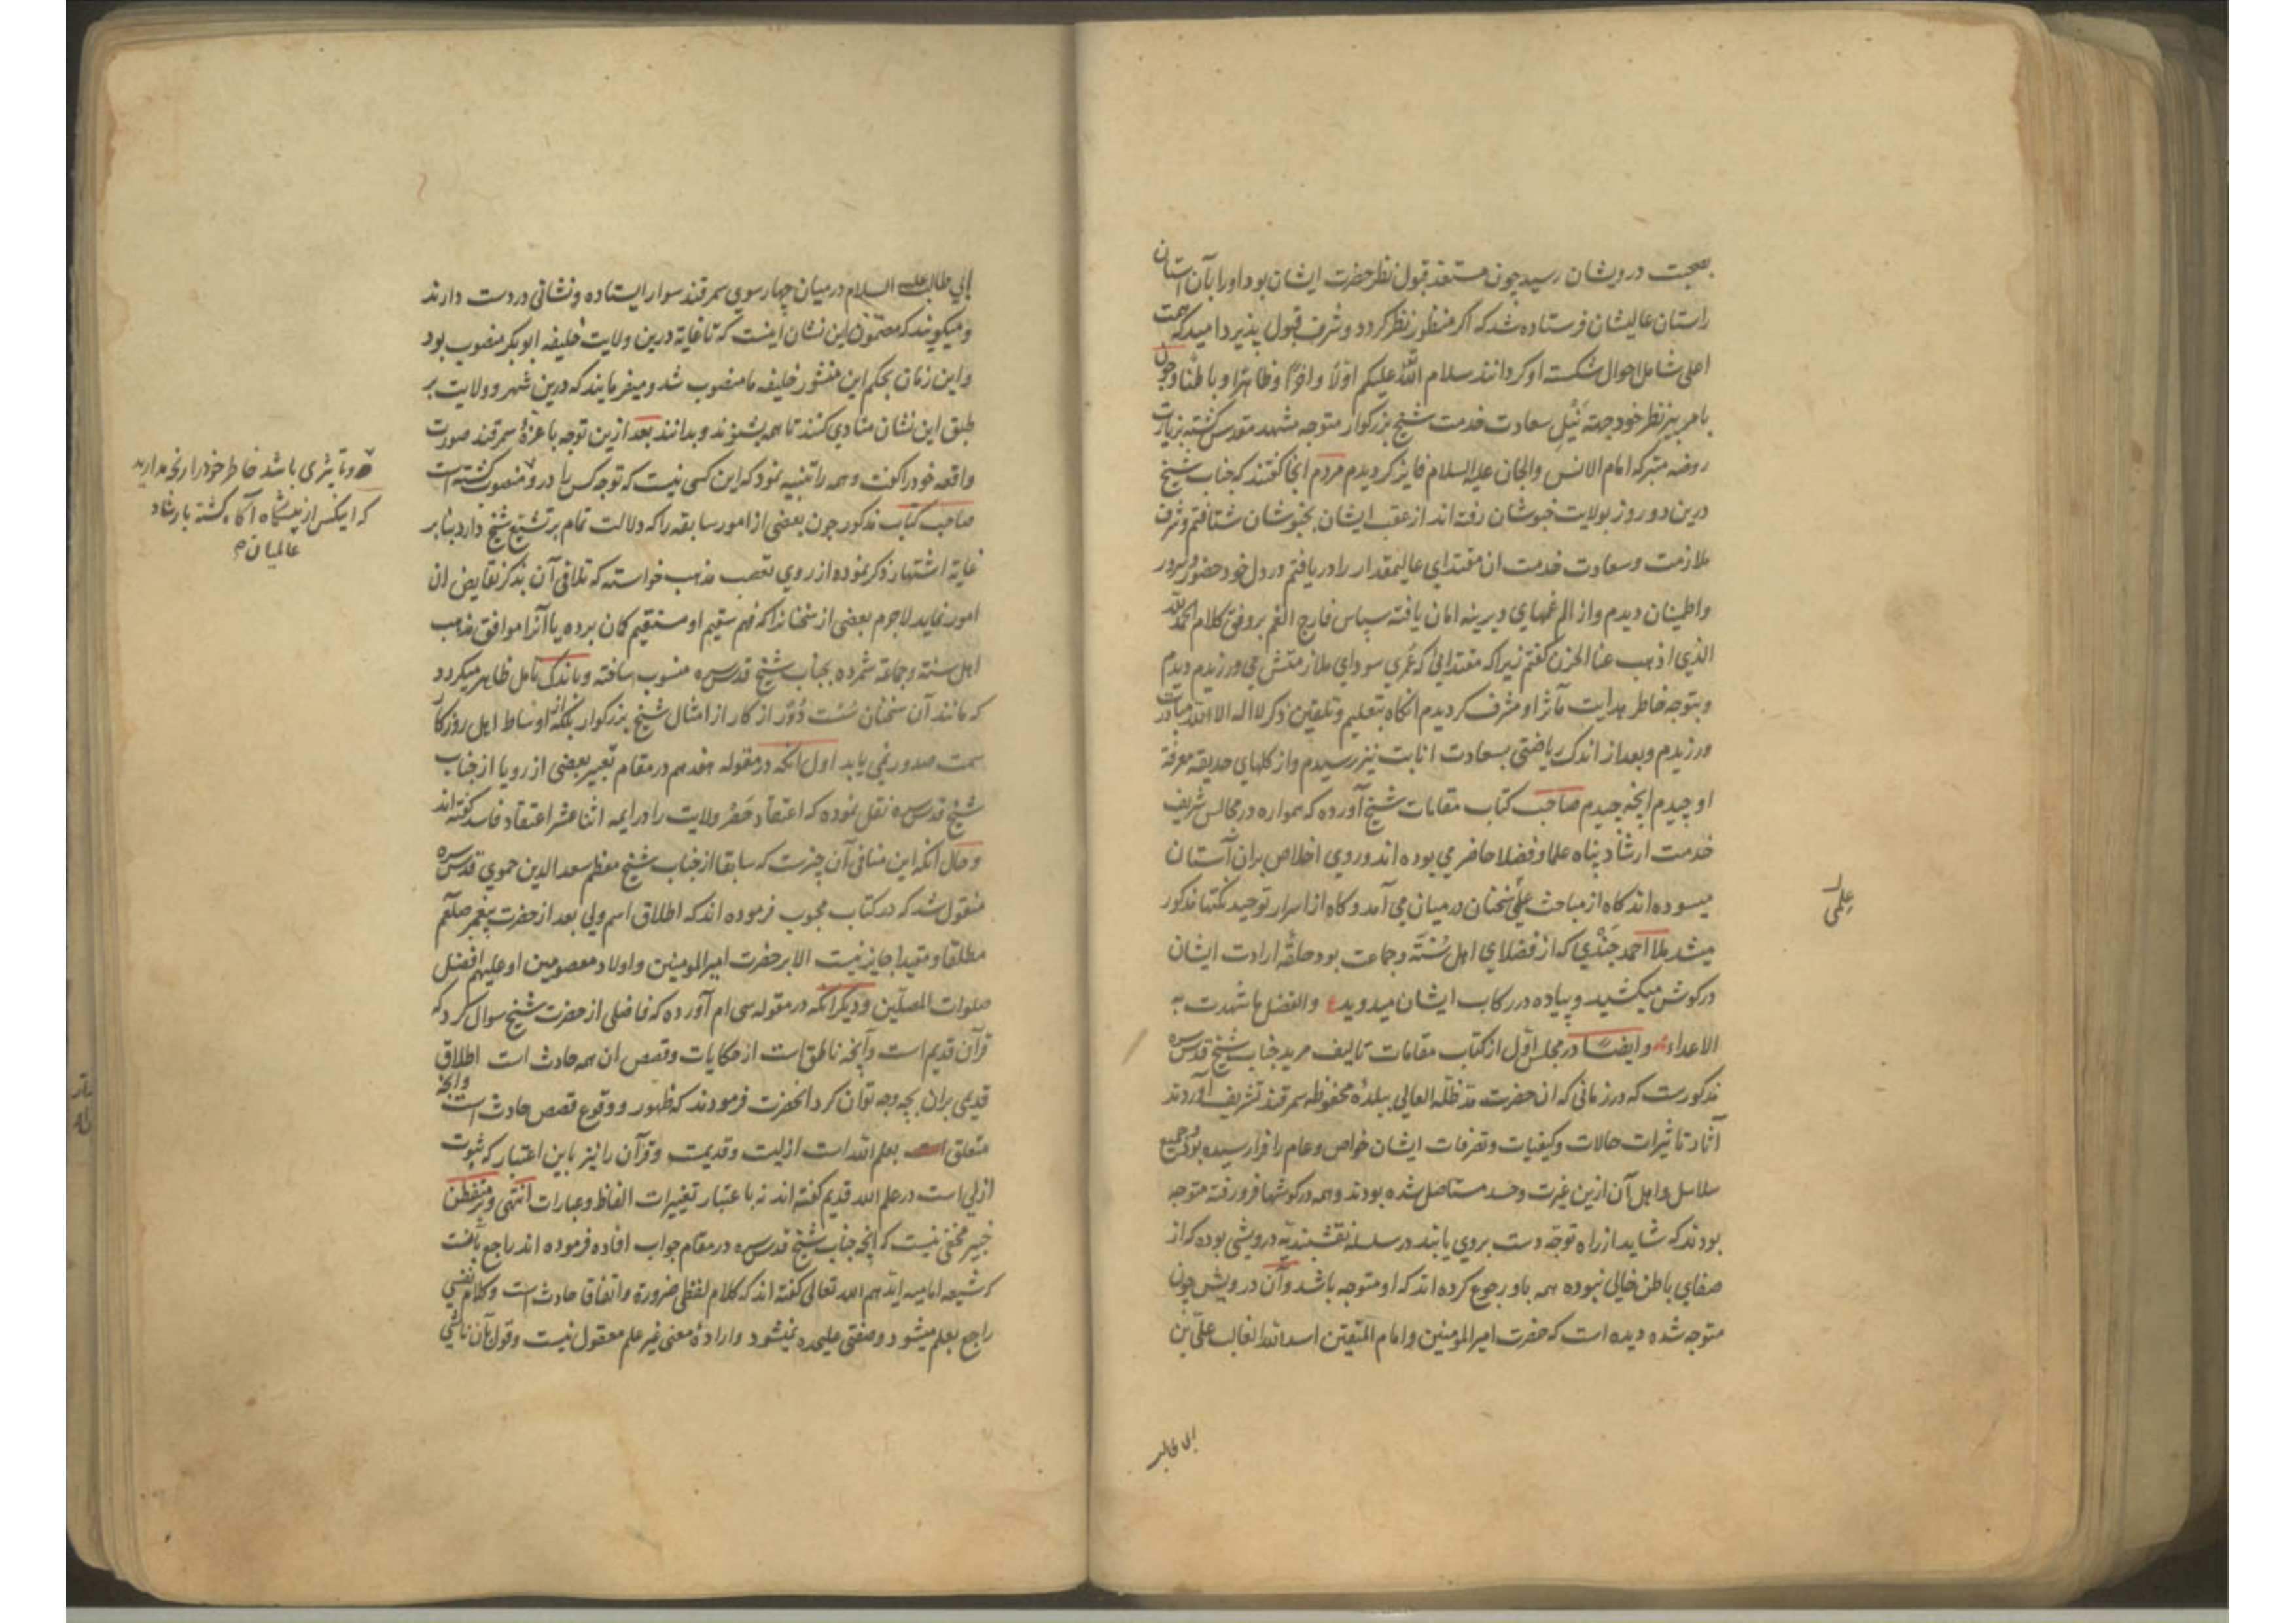 بصحبت درویشان رسید چون مستعد قبول نظر حضرت ایشان بود او را بآن آستان
راستان عالیشان فرستاده شد که اکر منظور نظر کردد و شرف قبول پذیرد امید که همت
اعلی شامل احوال شکسته او کردانند سلام الله علیکم اولا و اخرا و ظاهرا و باطنا و چون
بامر پیر نظر خود جهة نیل سعادت خدمت شیخ بزرکوار متوجه مشهد مقدس کشته بزیارت
روضه متبرکه امام الانس والجان علیه السلام فایز کردیدم مردم انجا کفتند که جناب شیخ
درین دو روز بولایت خبوشان رفته اند از عقب ایشان بخبوشان شتافتم و شرف
ملازمت و سعادت خدمت ان مقتدای عالیمقدار را دریافتم و در دل خود حضور و سرور
و اطمینان دیدم و از الم غمهای دیرینه امان یافته سپاس فارج الغم بر وفق کلام الحمد لله
الذی اذهب عنا الحزن کفتم زیرا که مقتدائی که عمری سودای ملازمتش می ورزیدم دیدم
و بتوجه خاطر هدایت مآثر او مشرف کردیدم انکاه بتعلیم و تلقین ذکر لا اله الا الله مبادرت
ورزیدم و بعد از اندک ریاضتی بسعادت انابت نیز رسیدم و از کلهای حدیقه معرفة
او چیدم انچه چیدم صاحب کتاب مقامات شیخ آورده که همواره در مجالس شریف
خدمت ارشاد پناه علما و فضلا حاضر می بوده اند و روی اخلاص بران آستان
میسوده اند کاه از مباحث علمی سخنان در میان می آمد و کاه از اسرار توحید نکتها مذکور
میشد ملا احمد جندی که از فضلای اهل سنة و جماعت بود حلقه ارادت ایشان
در کوش میکشید و پیاده در رکاب ایشان میدوید ع والفضل ما شهدت به
الاعداء و ایضا در مجلس اول از کتاب مقامات تالیف مرید جناب شیخ قدس سره
مذکورست که در زمانی که ان حضرت مد ظله العالی ببلده محفوظه سمرقند تشریف آوردند
آثار تاثیرات حالات و کیفیات و تصرفات ایشان خواص و عام را فرا رسیده بود و جمیع
سلاسل و اهل آن ازین غیرت و حسد مستاصل شده بودند و همه در کوشها فرو رفته متوجه
بودند که شاید از راه توجه دست بروی یابند در سلسله نقشبندیه درویشی بوده که از
صفای باطن خالی نبوده همه باو رجوع کرده اند که او متوجه باشد و آن درویش چون
متوجه شده دیده است که حضرت امیر المومنین و امام المتقین اسد الله الغالب علی بن
ابی طالب
علمی
ابی طالب علیه السلام در میان چهار سوی سمرقند سوار ایستاده و نشانی در دست دارند
و میکویند که مضمون این نشان اینست که تا غایة درین ولایت خلیفه ابوبکر منصوب بود
و این زمان بحکم این منشور خلیفه ما منصوب شد و میفرمایند که درین شهر و ولایت بر
طبق این نشان منادی کنند تا همه بشنوند و بدانند بعد ازین توجه با عزه سمرقند صورت
واقعه خود را کفت و همه را تنبیه نمود که این کسی نیست که توجه کس را درو منصوب کشته است
صاحب کتاب مذکور چون بعضی از امور سابقه را که دلالت تمام بر تشیع شیخ دارد بنابر
غایة اشتهار ذکر نموده از روی تعصب مذهب خواسته که تلافی آن بذکر نقایض ان
امور نماید لاجرم بعضی از سخنانرا که فهم سقیم او مستقیم کمان برده یا آنرا موافق مذهب
اهل سنة و جماعة شمرده بجناب شیخ قدس سره منسوب ساخته و باندک تامل ظاهر میکردد
که مانند آن سخنان سست دور از کار از امثال شیخ بزرکوار بلکه از اوساط اهل روزکار
سمت صدور نمی یابد اول انکه در مقوله هفدهم در مقام تعبیر بعضی از رویا از جناب
شیخ قدس سره نقل نموده که اعتقاد حصر ولایت را در ایمه اثنا عشر اعتقاد فاسد کفته اند
و حال آنکه این منافی آن چیزست که سابقا از جناب شیخ معظم سعد الدین حموی قدس سره
منقول شد که در کتاب محبوب فرموده اند که اطلاق اسم ولی بعد از حضرت پیغمبر صلعم
مطلقا و مقیدا جایز نیست الا بر حضرت امیر المومنین و اولاد معصومین او علیهم افضل
صلوات المصلین و دیکر آنکه در مقوله سی ام آورده که فاضلی از حضرت شیخ سوال کرد که
قرآن قدیم است و آنچه ناطق است از حکایات و قصص ان همه حادث است اطلاق
قدیمی بران بچه وجه توان کرد انحضرت فرمودند که ظهور و وقوع قصص حادث است و انچه
متعلق بعلم الله است ازلیت و قدیمت و قرآن را نیز باین اعتبار که ثبوت
ازلی است در علم الله قدیم کفته اند نه با عتبار تغییرات الفاظ و عبارات انتهی و بر متفطن
خبیر مخفی نیست که انچه جناب شیخ قدس سره در مقام جواب افاده فرموده اند راجع بانست
که شیعه امامیه ایدهم الله تعالی کفته اند که کلام لفظی ضرورة و اتفاقا حادث است و کلام نفسی
راجع بعلم میشود و صفتی علیحده نمیشود و اراده معنی غیر علم معقول نیست و قول بآن ناشی
و تاثیری باشد خاطر خود را رنجه مدارید
که اینکس از پیشکاه آکاه کشته بارشاد
عالمیان